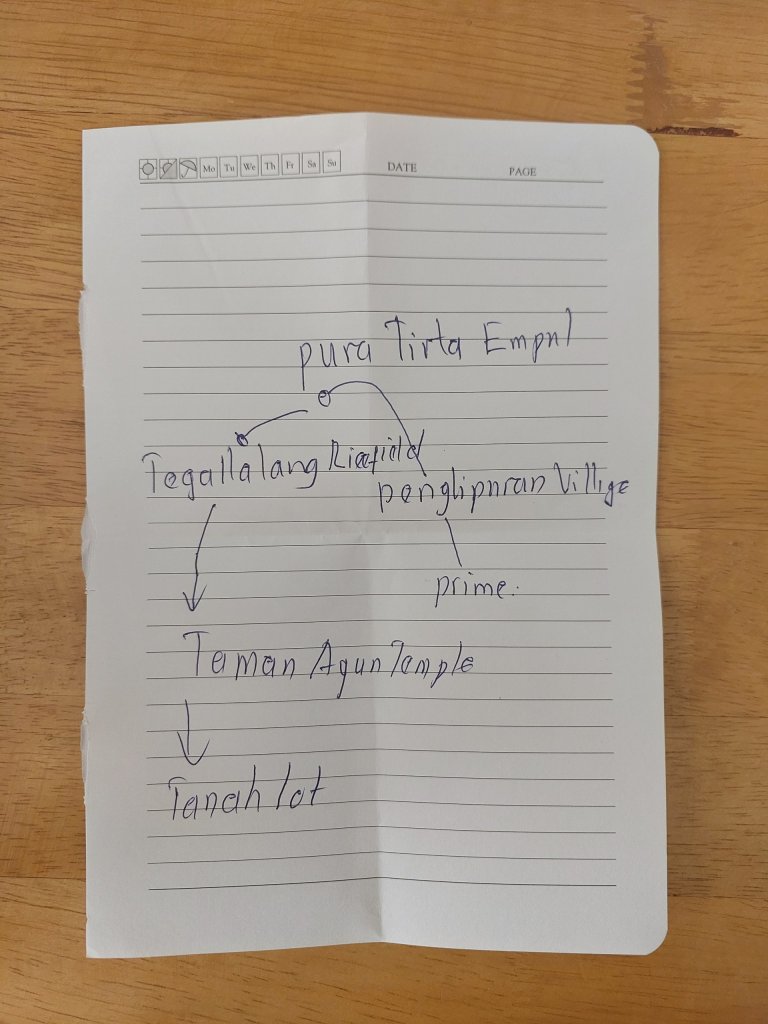 Mo Tu We Th Fr Sa Su DATE PAGE
pura Tirta Empul
Tegallalang Ricefield
penglipuran Villige
prime.
Taman Agun Temple
Tanah lot